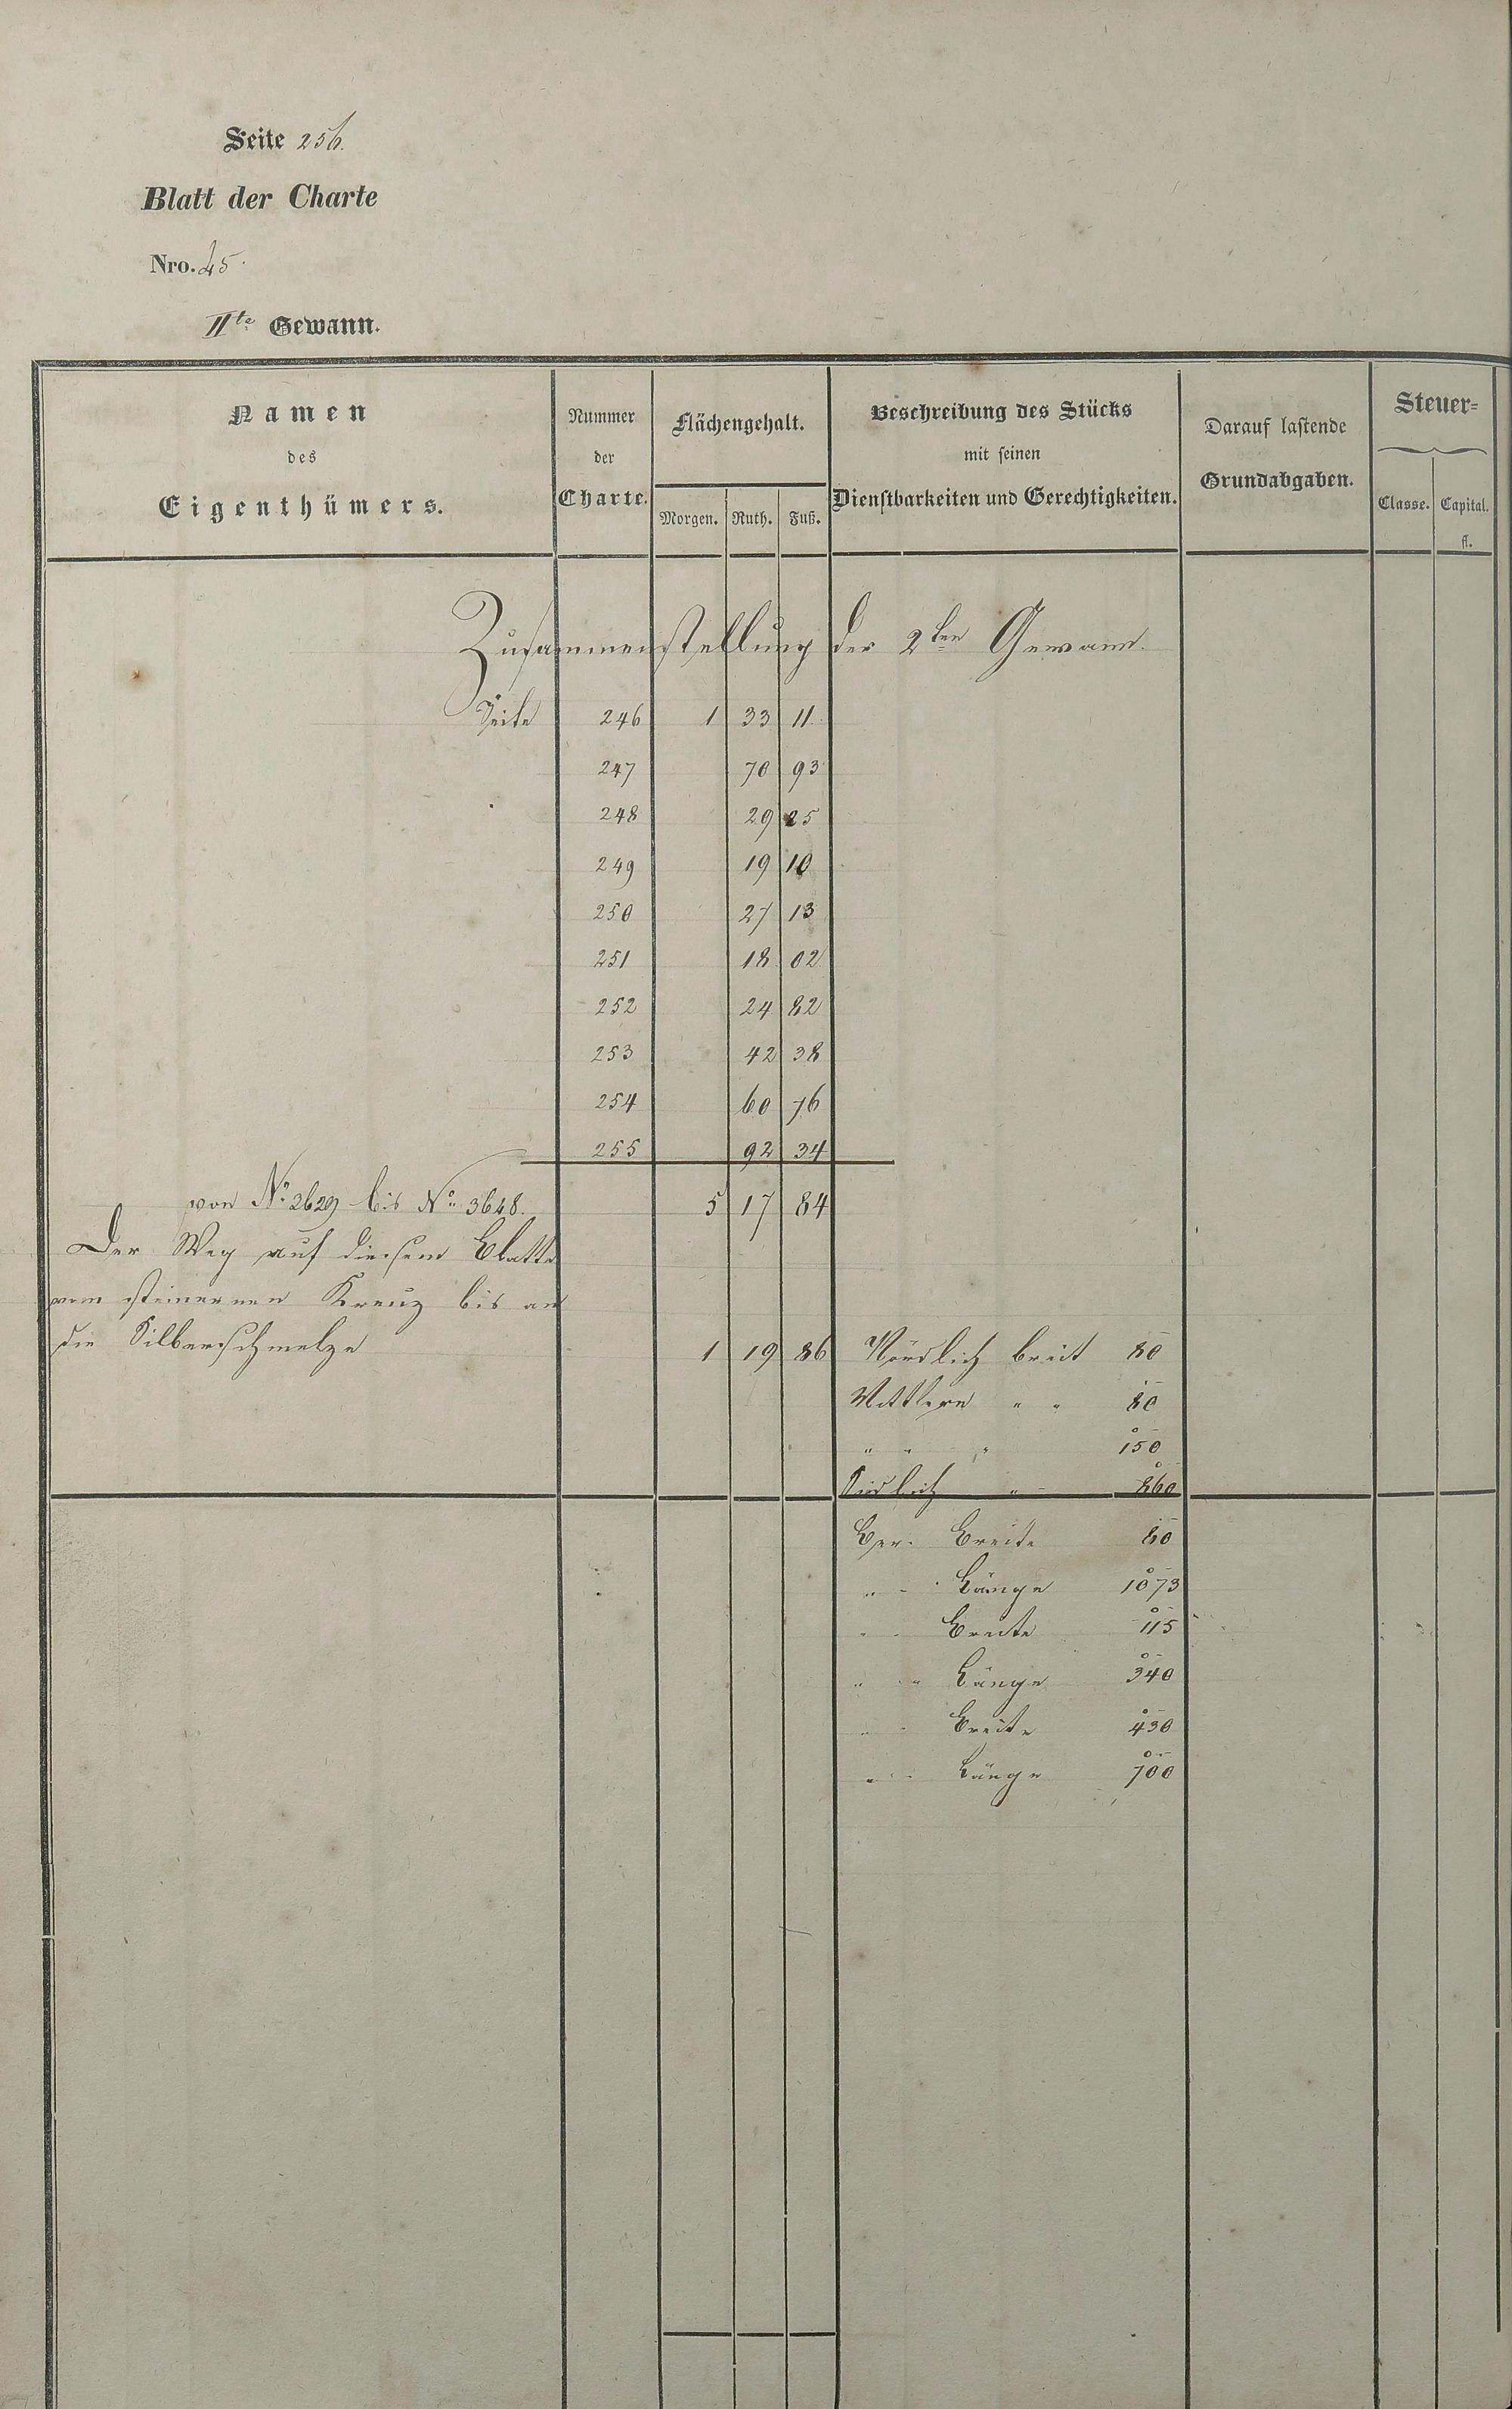 Seite 256.
Blatt der Charte
Nro. 45.
IIte Gewann.
Namen des Eigenthümers.
Nummer der Charte.
Flächengehalt.
Morgen. Ruth. Fuß.
Beschreibung des Stücks mit seinen Dienstbarkeiten und Gerechtigkeiten.
Darauf lastende Grundabgaben.
Steuer=
Classe. Capital.
fl.
Zusammenstellung der 2ten Gewann.
Seite 246 1 33 11
247 70 93
248 29 25
249 19 10
250 27 13
251 18 02
252 24 82
253 42 38
254 60 76
255 92 34
von No 2629 bis No 3648. 5 17 84
Der Weg auf diesem Blatte
vom steinernen Kreuz bis an
die Silberschmelze 1 19 86 Nördlich breit 80
Mittlere " " 80
" " " 150
Südlich " 860
Ber. Breite 80
" " Länge 1073
" " Breite 115
" " Länge 340
" " Breite 430
" " Länge 700